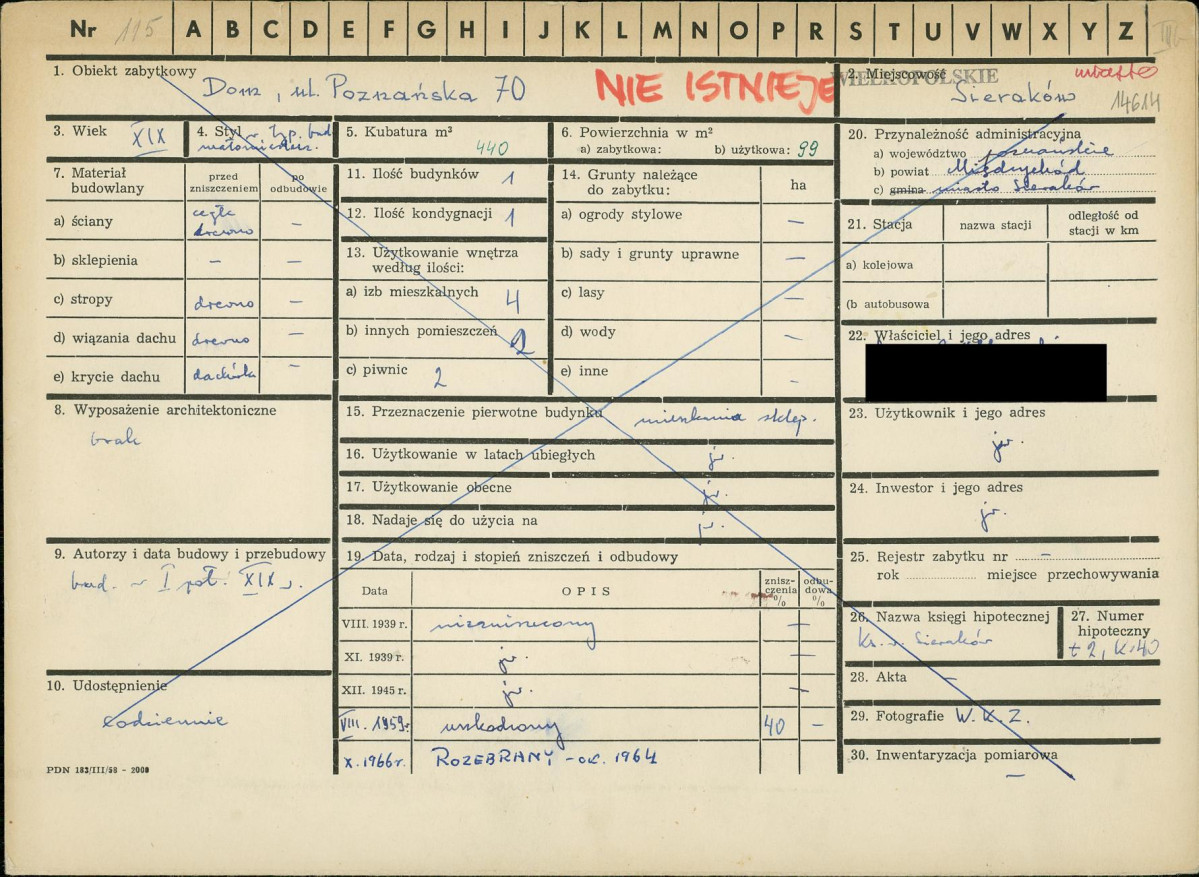 Nr 115 A B C D E F G H I J K L M N O P R S T U V W X Y Z
1. Obiekt zabytkowy
Dom, ul. Poznańska 70
NIE ISTNIEJE
WIELKOPOLSKIE
2. Miejscowość
Sieraków
miasto
14614
3. Wiek XIX
4. Styl w. typ. bud
małomiaszcz.
5. Kubatura m³
440
6. Powierzchnia w m²
a) zabytkowa: b) użytkowa: 99
20. Przynależność administracyjna
a) województwo poznańskie
b) powiat Międzychód
c) gmina miasto Sieraków
7. Materiał budowlany
przed zniszczeniem
po odbudowie
a) ściany cegła drewno –
b) sklepienia – –
c) stropy drewno –
d) wiązania dachu drewno –
e) krycie dachu dachówka –
11. Ilość budynków 1
12. Ilość kondygnacji 1
13. Użytkowanie wnętrza
według ilości:
a) izb mieszkalnych 4
b) innych pomieszczeń 2
c) piwnic 2
14. Grunty należące
do zabytku:
ha
a) ogrody stylowe –
b) sady i grunty uprawne –
c) lasy –
d) wody –
e) inne –
21. Stacja
nazwa stacji
odległość od
stacji w km
a) kolejowa
(b autobusowa
22. Właściciel i jego adres
8. Wyposażenie architektoniczne
brak
15. Przeznaczenie pierwotne budynku mieszkania sklep.
16. Użytkowanie w latach ubiegłych jw.
17. Użytkowanie obecne jw.
18. Nadaje się do użycia na jw.
23. Użytkownik i jego adres
jw.
24. Inwestor i jego adres
jw.
9. Autorzy i data budowy i przebudowy
bud. w I poł. XIX w.
19. Data, rodzaj i stopień zniszczeń i odbudowy
Data
OPIS
znisz-
czenia
%
odbu-
dowa
%
VIII. 1939 r. niezniszczony –
XI. 1939 r. jw. –
XII. 1945 r. jw. –
VIII. 1959r. uszkodzony 40 –
X. 1966r. ROZEBRANY - OK. 1964
25. Rejestr zabytku nr –
rok miejsce przechowywania
26. Nazwa księgi hipotecznej
Ks. w. Sieraków
27. Numer
hipoteczny
t 2, k. 40
28. Akta –
29. Fotografie W. K. Z.
30. Inwentaryzacja pomiarowa
–
10. Udostępnienie
codziennie
PDN 183/III/58 - 2000